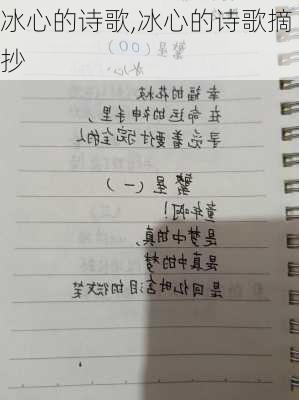 冰心的诗歌,冰心的诗歌摘
抄
繁星(00)
冰心
幸福的花枝
在命运的神手里,
寻觅着要付与完全的人
繁星(一)
童年啊!
是梦中的真,
是真中的梦
是回忆时含泪的微笑